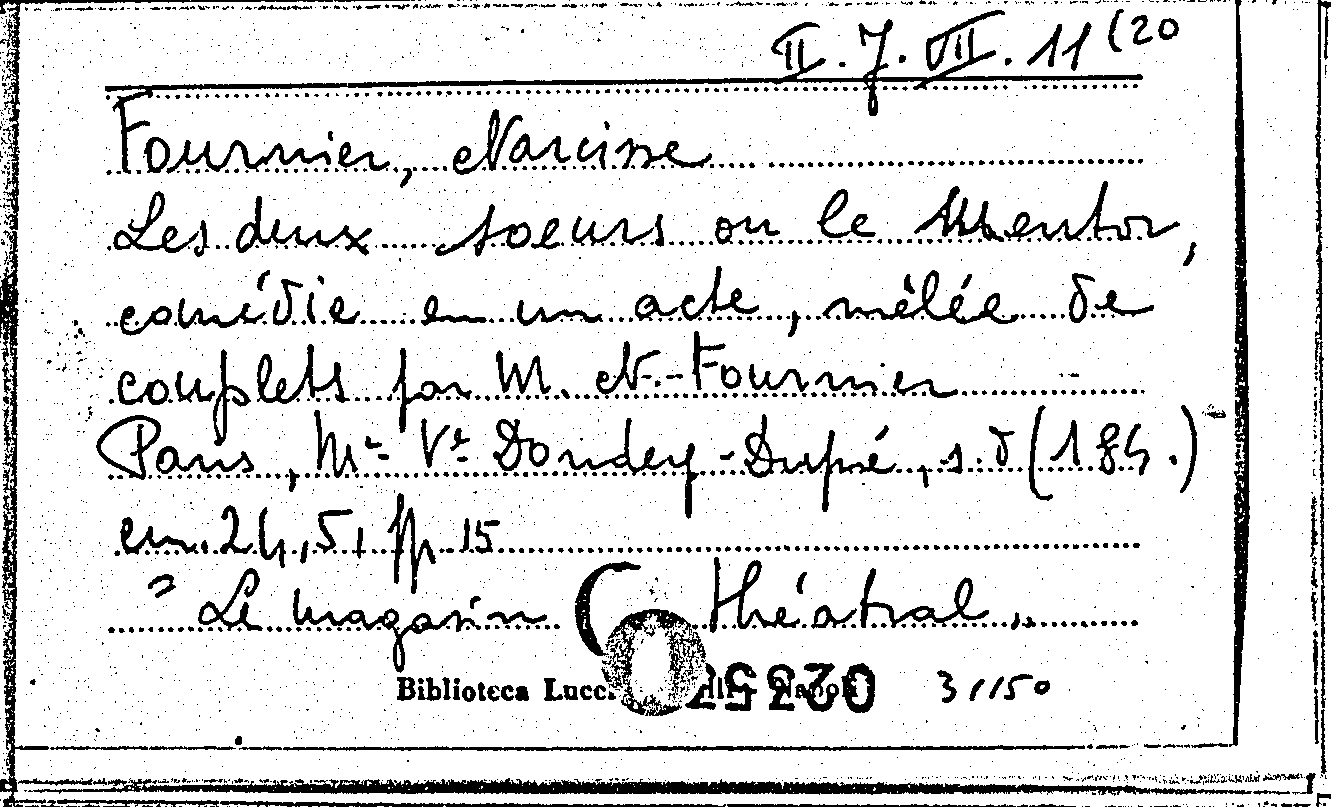 II. J. VII. 11 (20
Fournier, Narcisse
Les deux soeurs ou le Mentor,
comédie en un acte, mêlée de
couplets par M. N.-Fournier
Paris, Mᵉ Vᵉ Dondey-Dupré, s.d (184.)
cm. 24,5, pp 15
" Le magasin théatral "
Biblioteca Lucc
31150